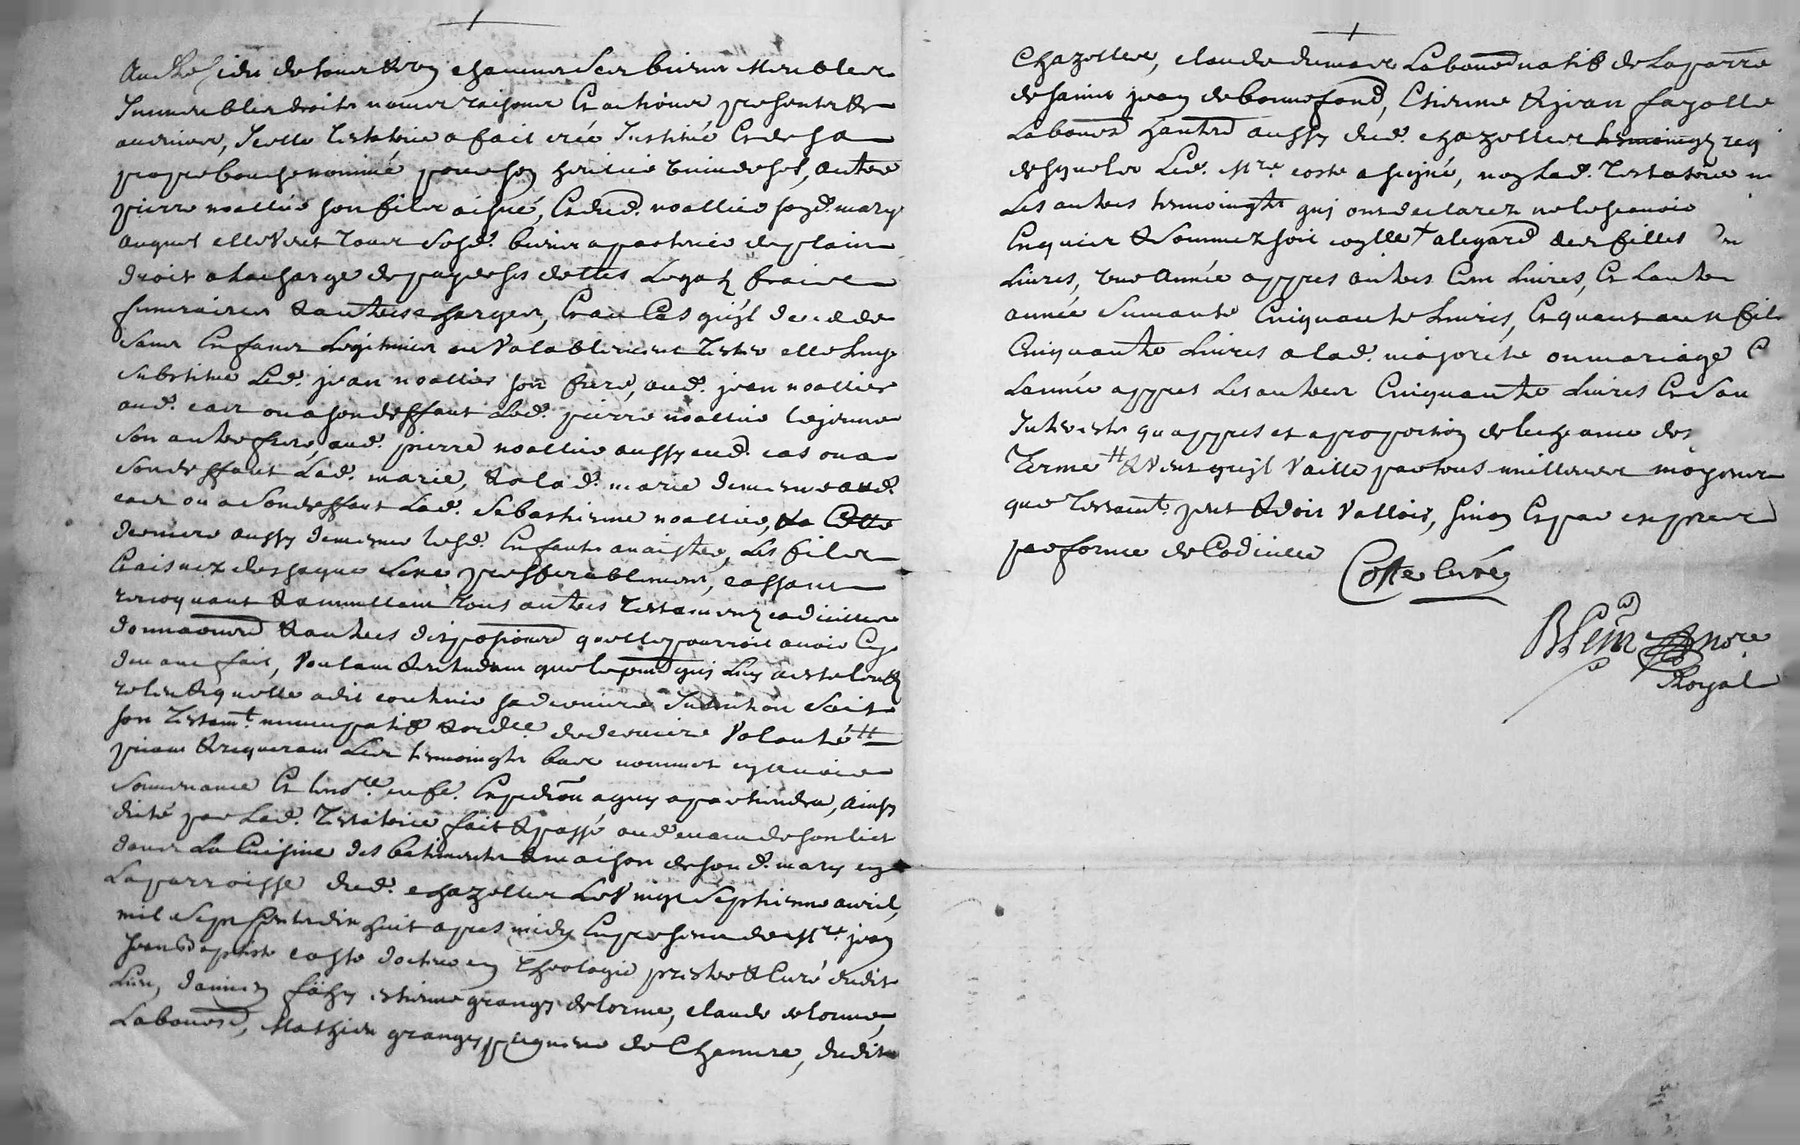 Au residu de tous et un chacuns ses biens Meubles
Immeubles droits noms raisons Et actions presents et
advenir, Icelle Testatrice a fait créé Institué Et de sa
propre bouche nommé pour son heritié universel, autre
pierre noallié son fils aisné, Et dud. noallié sond. mary
auquel elle veut tous sesd. biens apartenir de plain
droit a la charge de payer ses dettes Legatz fraix
funeraires et autres charges, Et au Cas qu'il decede
sans Enfans Legitimes ou Valablement tester elle luy
substitue Led. jean noallié son frere, aud. jean noallier
aud. cas ou a son deffaut Led. pierre noallié le jeune
son autre frere, aud. pierre noallié aussy aud. cas ou a
son deffaut Lad. marie, et a lad. marie de mesme aud.
cas ou a son deffaut Lad. Sebastienne noallié,
derniere aussy de mesme lesd. Enfants a naistre, Les fils
Et aisnez de chaque sexe preferablement, cassant
revoquant et annullant tous autres testamentz codicilles
donnaons et autres dispositions quelle pourroit avoir Cy
devant fait, Voulant et entendant que le pnt qui Luy a esté leu
releu et quelle a dit contenir sa derniere Intention soit
son testamt. nuncupatif et ordce de derniere Volonté
priant et requerant Les tesmoingts bas nommes en avoir
souvenance Et led. nore. en fe. Expedion a qui apartiendra, ainsy
dicté par Lad. Testatrice fait et passé au devant de son lict
dans La Cuisine des batiments et maison de sond. mary en
La parroisse dud. chazelles Le Vingt Septiesme avril,
mil sept Cents dix huit apres midy En presence de Mre. jean
Jean Baptiste coste docteur en Theologie prestre et Curé dudit
Lieu, damien fahy estienne grangy delorme, claude delorme,
Labour, Mathieu grangy vigneron de Chenure, dudit
Chazelles, claude dumas Labour natif de La parre
de sainct jean de bonnefond, Etienne et jean fayolle
Labours habtd aussy dud. chazelles tesmoingts req
desquels Led. Mre. coste a signé, non Lad. Testatrice ni
Les autres tesmoingts qui ont declarez ne le sçavoir
Enquis et sommez soit à l'egard des filles
Livres, une Année appres autres Cent Livres, Et L'autre
année suivante Cinquante Livres, Et quant aux fils
Cinquante Livres a lad. majorité ou mariage Et
L'année appres Les autres Cinquante Livres Et sans
Interests qu'appres et a proportion de l'echeance des
Termes et Veut qu'il Vaille par tous meilleurs moyens
que testamt. peut et doit Valloir, sinon Et par expres
par forme de Codicille
Coste Curé
Blein nore
Royal